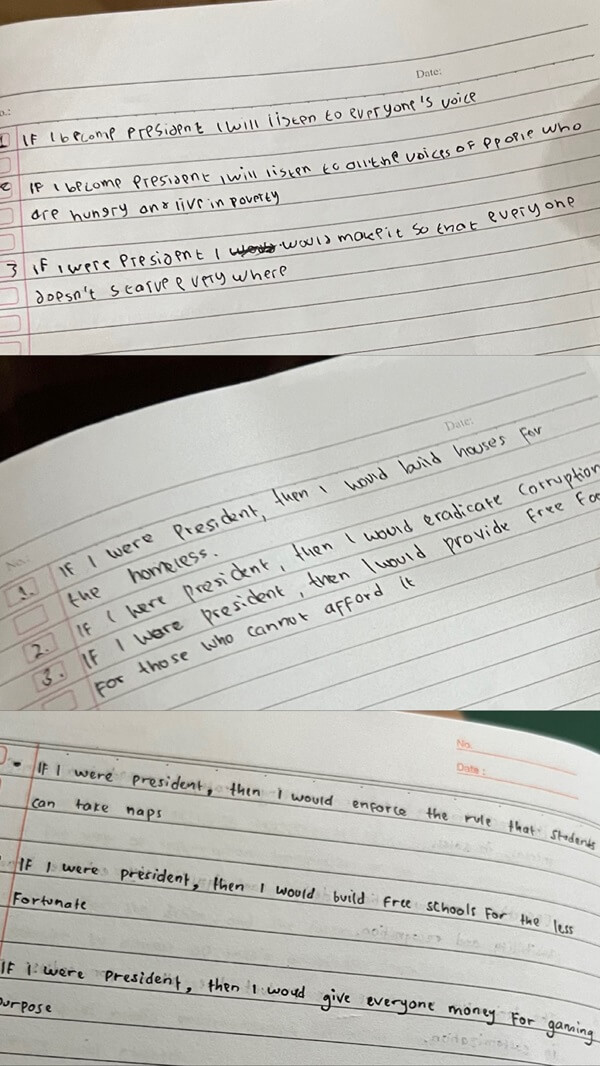 Date:
1 IF I become president I will listen to everyone's voice
2 IF I become president I will listen to all the voices of people who
are hungry and live in poverty
3 IF I were president I would make it so that everyone
doesn't starve every where
Date:
No.:
1. IF I were president, then I would build houses for
the homeless.
2. IF I were president, then I would eradicate corruption
3. IF I were president, then I would provide free
For those who cannot afford it
No.
Date:
- IF I were president, then I would enforce the rule that students
can take naps
IF I were president, then I would build free schools for the less
Fortunate
IF I were president, then I would give everyone money for gaming
purpose